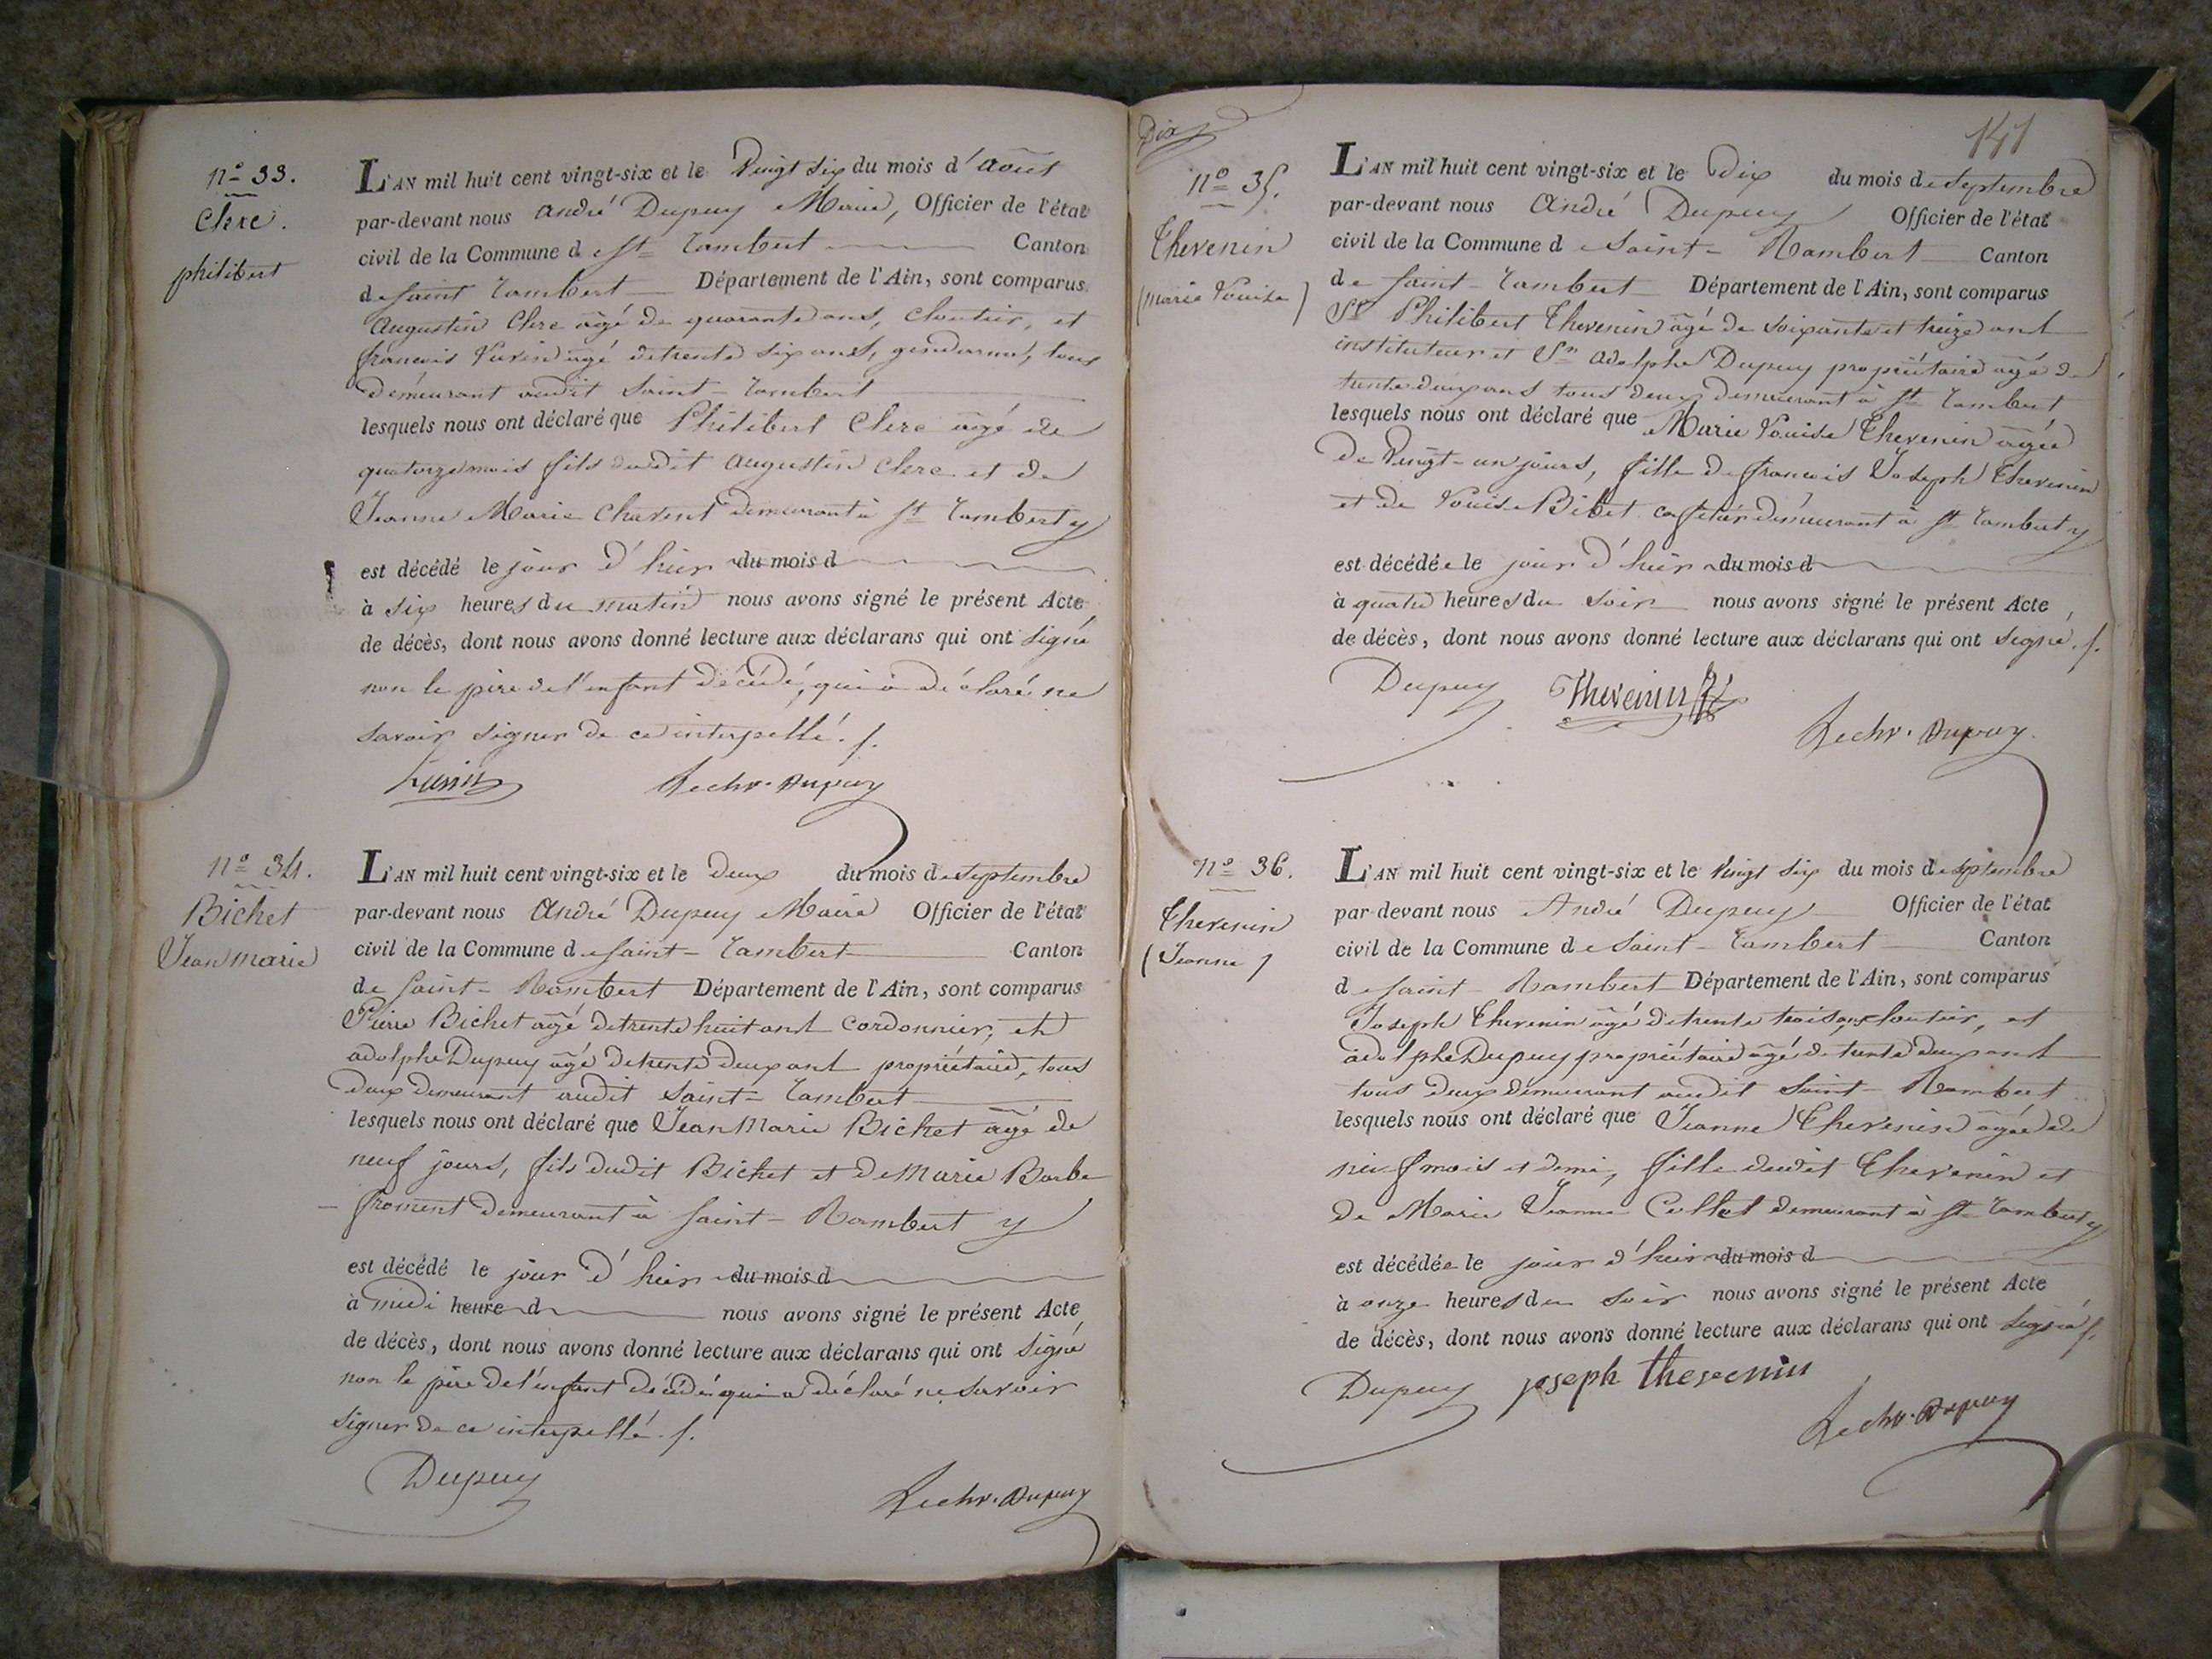 n° 33.
Clerc.
philibert
L'AN mil huit cent vingt-six et le Vingt six du mois d'août
par-devant nous André Dupuy Maire, Officier de l'état
civil de la Commune de St Rambert Canton
de Saint Rambert Département de l'Ain, sont comparus
Augustin Clerc âgé de quarante ans, cloutier, et
françois Vurin âgé de trente six ans, gendarme, tous
demeurant audit Saint-Rambert
lesquels nous ont déclaré que Philibert Clerc âgé de
quatorze mois fils dudit Augustin Clerc et de
Jeanne Marie Charvent demeurant à St Rambert y
est décédé le jour d'hier du mois d
à six heures du matin nous avons signé le présent Acte
de décès, dont nous avons donné lecture aux déclarans qui ont signé
non le père de l'enfant décédé, qui a déclaré ne
savoir signer de ce interpellé.
Lechr. Dupuy
n° 34.
Bichet
Jean marie
L'AN mil huit cent vingt-six et le deux du mois de Septembre
par-devant nous André Dupuy Maire Officier de l'état
civil de la Commune de Saint-Rambert Canton
de Saint-Rambert Département de l'Ain, sont comparus
Pierre Bichet âgé de trente huit ans cordonnier, et
adolphe Dupuy âgé de trente deux ans propriétaire, tous
deux demeurant audit Saint-Rambert
lesquels nous ont déclaré que Jean Marie Bichet âgé de
neuf jours, fils dudit Bichet et de Marie Barbe
froment demeurant à Saint-Rambert y
est décédé le jour d'hier du mois d
à midi heure d nous avons signé le présent Acte
de décès, dont nous avons donné lecture aux déclarans qui ont signé
non le père de l'enfant décédé qui a déclaré ne savoir
signer de ce interpellé.
Dupuy Lechr. Dupuy
Dix
141
n° 35.
Thevenin
(marie Louise)
L'AN mil huit cent vingt-six et le Dix du mois de Septembre
par-devant nous André Dupuy Officier de l'état
civil de la Commune de Saint-Rambert Canton
de Saint-Rambert Département de l'Ain, sont comparus
Sr Philibert Thevenin âgé de soixante et treize ans
instituteur et Sr Adolphe Dupuy propriétaire âgé de
trente deux ans tous deux demeurant à St Rambert
lesquels nous ont déclaré que Marie Louise Thevenin âgée
de Vingt-un jours, fille de françois Joseph Thevenin
et de Louise Bibet cafetier demeurant à St Rambert y
est décédée le jour d'hier du mois d
à quatre heures du soir nous avons signé le présent Acte
de décès, dont nous avons donné lecture aux déclarans qui ont signé.
Dupuy Thevenin
Lechr. Dupuy
n° 36.
Thevenin
(Jeanne)
L'AN mil huit cent vingt-six et le Vingt six du mois de Septembre
par-devant nous André Dupuy Officier de l'état
civil de la Commune de Saint-Rambert Canton
de Saint-Rambert Département de l'Ain, sont comparus
Joseph Thevenin âgé de trente trois ans cloutier, et
adolphe Dupuy propriétaire âgé de trente deux ans
tous deux demeurant audit Saint-Rambert
lesquels nous ont déclaré que Jeanne Thevenin âgée de
neuf mois et demi, fille dudit Thevenin et
de Marie Jeanne Collet demeurant à St Rambert y
est décédée le jour d'hier du mois d
à onze heures du soir nous avons signé le présent Acte
de décès, dont nous avons donné lecture aux déclarans qui ont signé.
Dupuy joseph thevenin
Lechr. Dupuy